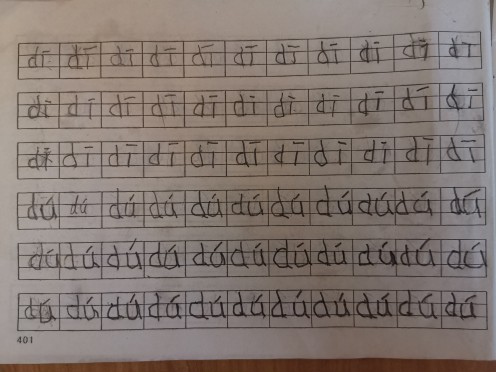 dī dī dī dī dī dī dī dī dī dī dī
dī dī dī dī dī dī dī dī dī dī dī
dī dī dī dī dī dī dī dī dī dī dī
dú dú dú dú dú dú dú dú dú dú dú
dú dú dú dú dú dú dú dú dú dú dú
dú dú dú dú dú dú dú dú dú dú dú
401